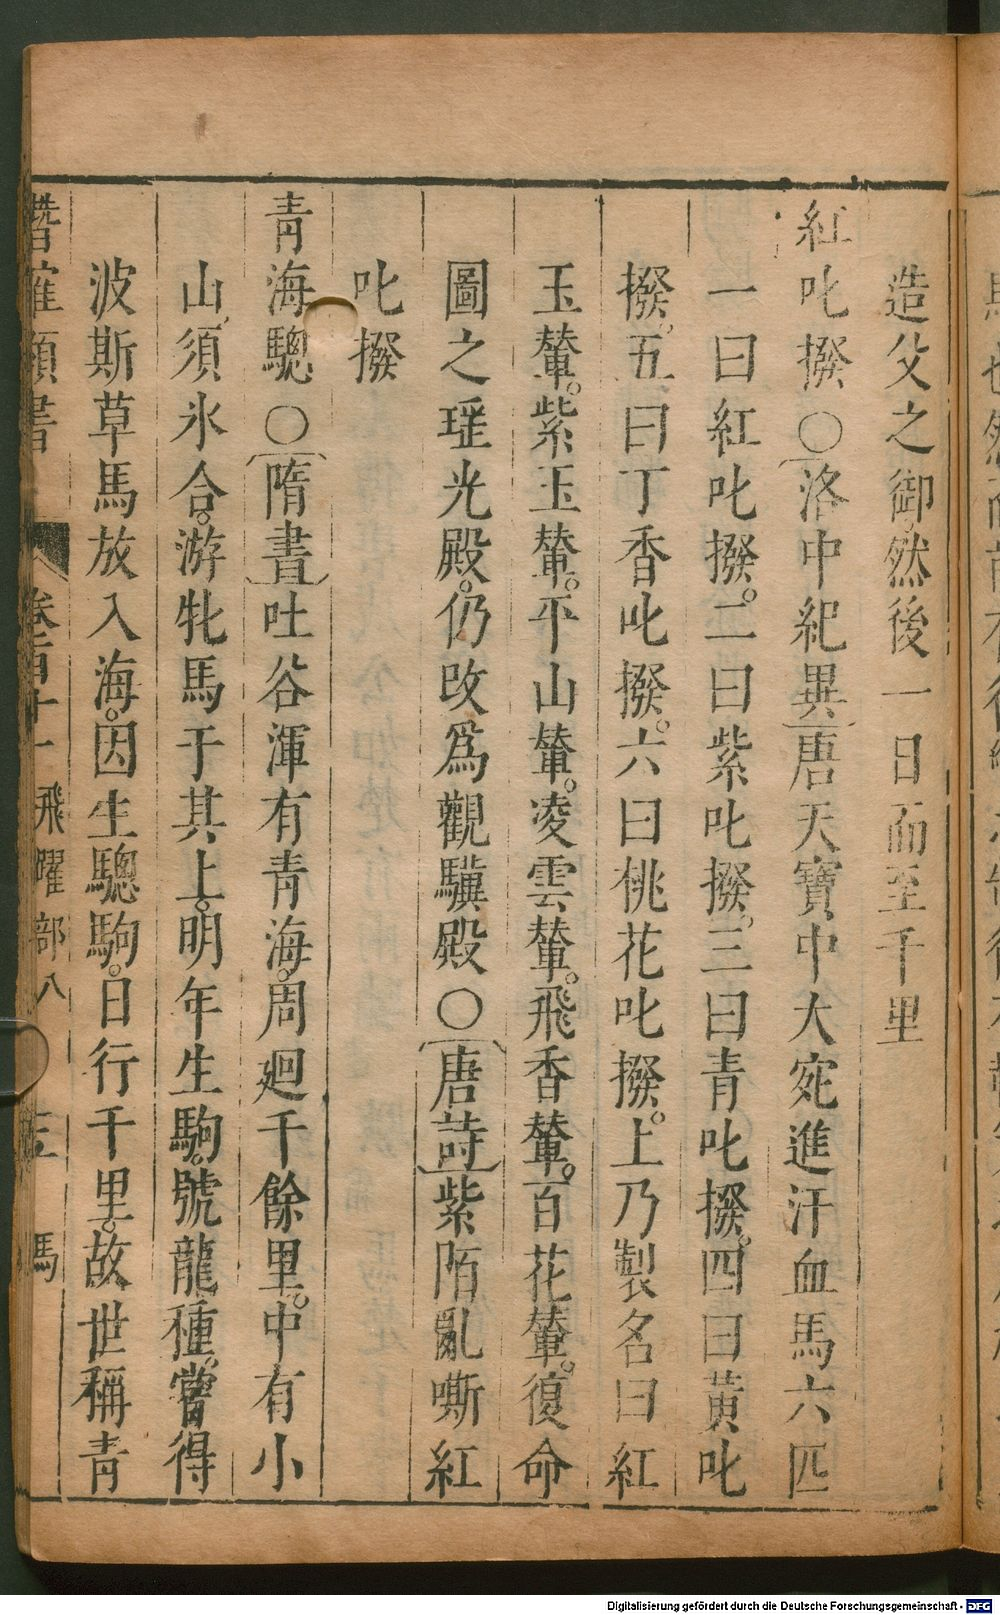 造父之御然後一日而至千里
紅叱撥○洛中紀異唐天寶中大宛進汗血馬六匹
一曰紅叱撥。二曰紫叱撥。三曰青叱撥。四曰黃叱
撥。五曰丁香叱撥。六曰桃花叱撥。上乃製名曰紅
玉輦。紫玉輦。平山輦。凌雲輦。飛香輦。百花輦。復命
圖之瑤光殿。仍改爲觀驥殿○唐詩紫陌亂嘶紅
叱撥
青海驄○隋書吐谷渾有青海。周廻千餘里。中有小
山。須氷合。游牝馬于其上。明年生駒。號龍種。嘗得
波斯草馬放入海。因生驄駒。日行千里。故世稱青
潛確類書 卷百十一 飛躍部八 三 馬
Digitalisierung gefördert durch die Deutsche Forschungsgemeinschaft - DFG